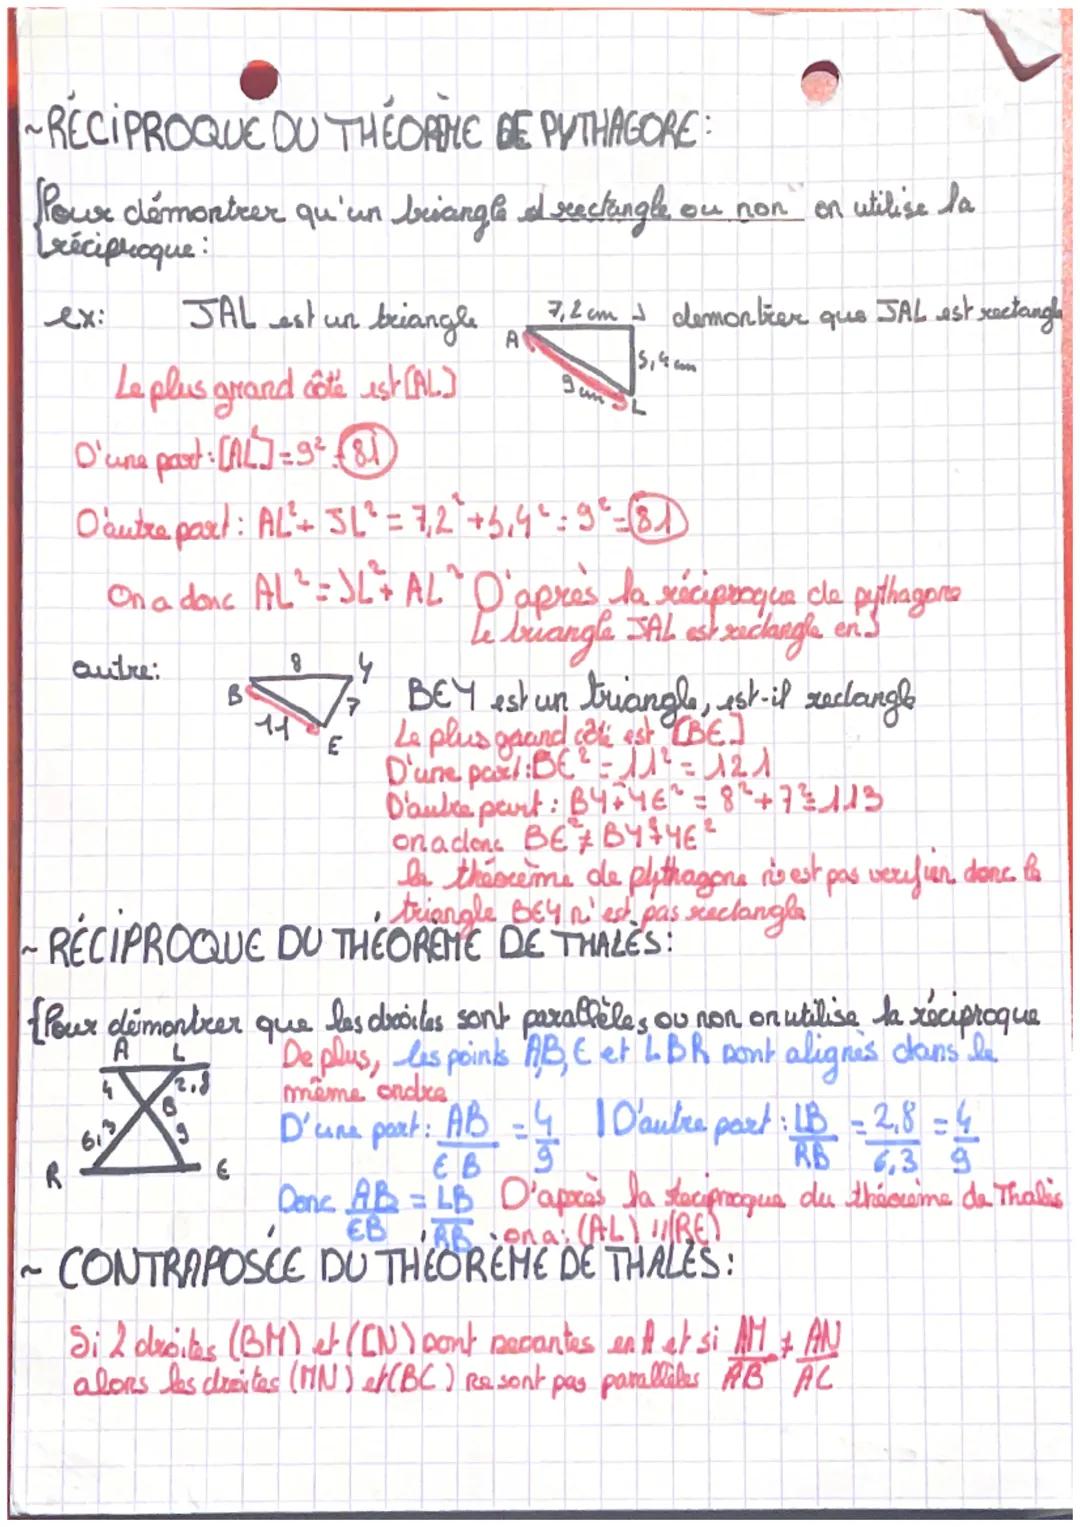 ~RÉCIPROQUE DU THÉORÈME DE PYTHAGORE:
Pour démontrer qu'un triangle rectangle ou non on utilise la
réciproque:
ex: JAL est un triangle
7,2 cm J
A
5,4 cm
9 cm
L
demontrer que JAL est rectangle
Le plus grand côté est [AL]
D'une part: [AL²] = 9² = 81
D'autre part: AL² + JL² = 7,2² + 5,4² = 9² = 81
On a donc AL² = JL² + AL² D'après la réciproque de pythagore
le triangle JAL est rectangle en J
autre:
8 Y
B 7
11 E
BEY est un triangle, est-il rectangle
Le plus grand côté est [BE]
D'une part: BE² = 11² = 121
D'autre part: BY² + YE² = 8² + 7² = 113
on a donc BE² ≠ BY² + YE²
le théorème de plythagore n'est pas verifier donc le
triangle BEY n'est pas rectangle
~ RÉCIPROQUE DU THÉORÈME DE THALÈS:
{Pour démontrer que les droites sont parallèles ou non on utilise la réciproque
A L
4 2,8
B
6,3 9
R E
De plus, les points A,B,E et LBR sont alignés dans le
même ordre
D'une part: AB/EB = 4/9 | D'autre part: LB/RB = 2,8/6,3 = 4/9
Donc AB/EB = LB/RB D'après la reciproque du théorème de Thalès
on a: (AL) // (RE)
~ CONTRAPOSÉE DU THÉORÈME DE THALÈS:
Si 2 droites (BM) et (CN) sont secantes en A et si AM/AB ≠ AN/AC
alors les droites (MN) et (BC) ne sont pas parallèles